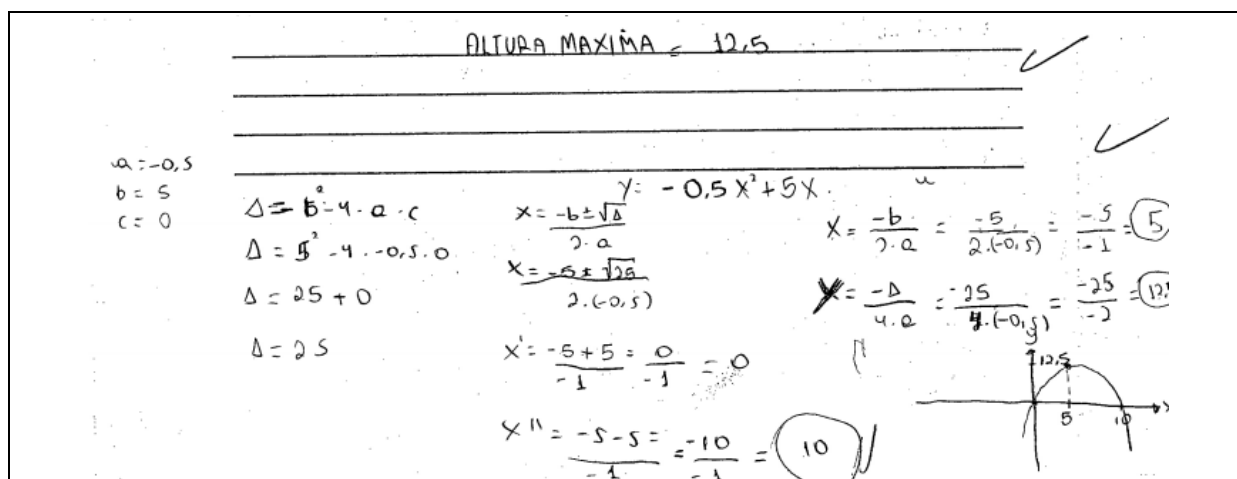 ALTURA MAXIMA = 12,5
a = -0,5
b = 5
c = 0
y = -0,5x² + 5x.
Δ = b² - 4 . a . c
Δ = 5² - 4 . -0,5 . 0
Δ = 25 + 0
Δ = 25
x = -b ± √Δ / 2 . a
x = -5 ± √25 / 2.(-0,5)
x' = -5 + 5 / -1 = 0 / -1 = 0
x'' = -5 - 5 / -1 = -10 / -1 = 10
x = -b / 2 . a = -5 / 2.(-0,5) = -5 / -1 = 5
y = -Δ / 4 . a = -25 / 4.(-0,5) = -25 / -2 = 12,
y
12,5
5 10 x